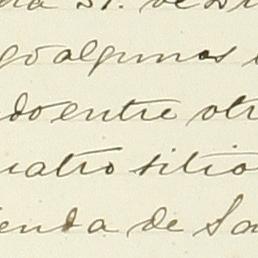 go algunos
do entre otr
uatro sitio
ienda de Sa